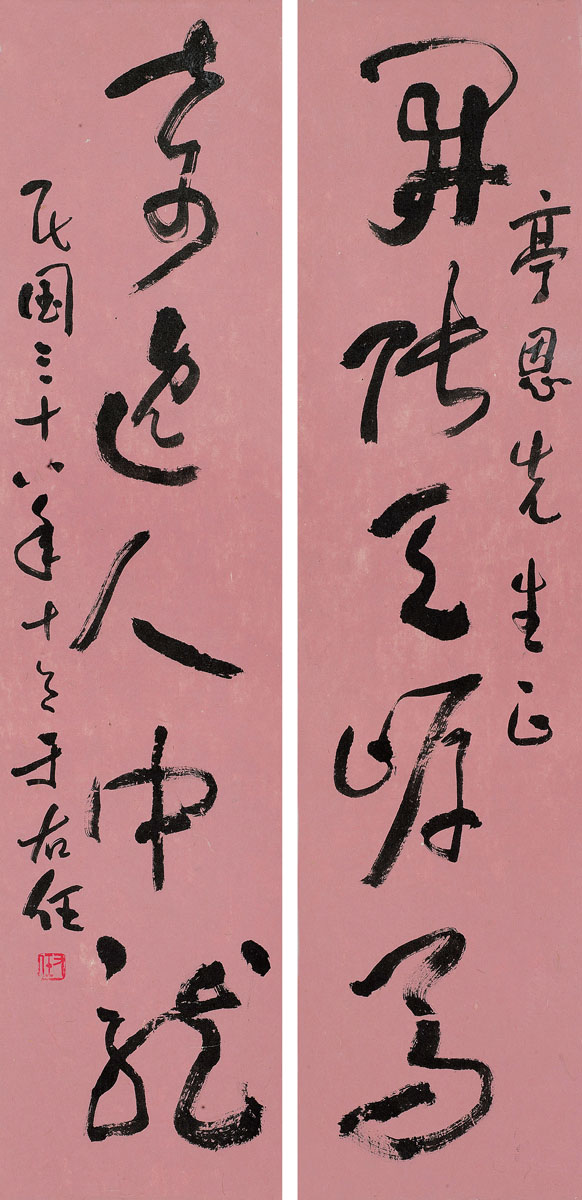 亭恩先生正
開張天岸馬
奇逸人中龍
民国三十八年十 于右任
右任